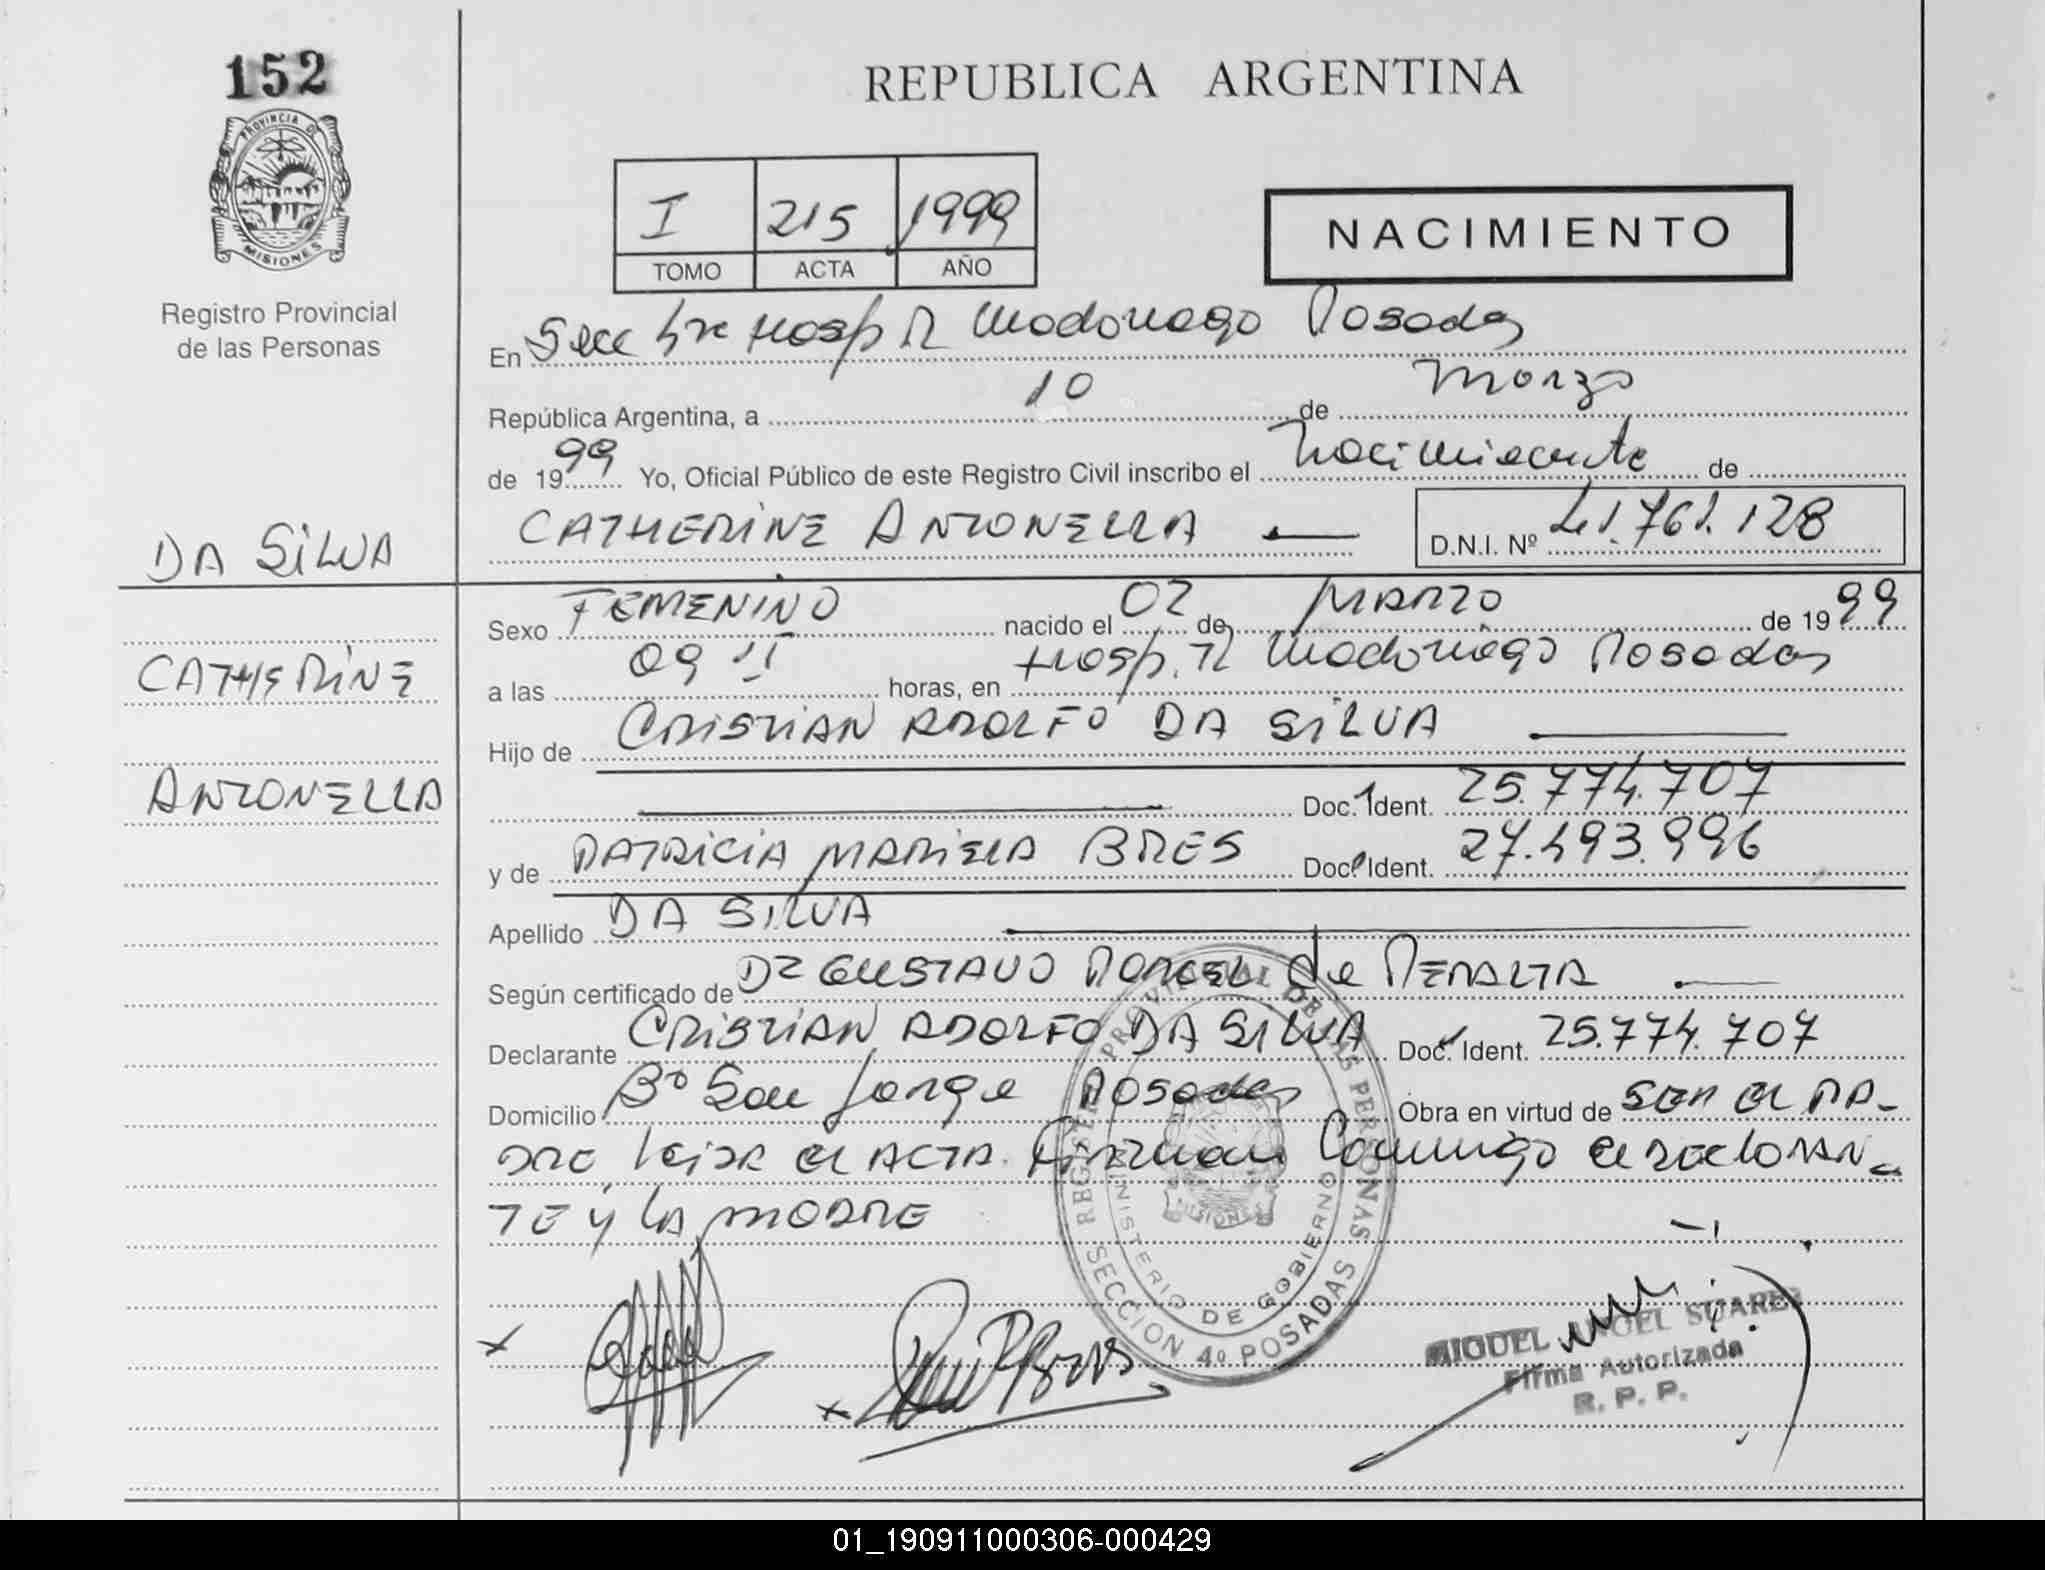 152
PROVINCIA DE
MISIONES
Registro Provincial
de las Personas
REPUBLICA ARGENTINA
I 215 1999
TOMO ACTA AÑO
NACIMIENTO
En Secc 4ta Hosp R Madariaga Posadas
República Argentina, a 10 de Marzo
de 1999 Yo, Oficial Público de este Registro Civil inscribo el nacimiento de
DA SILVA
CATHERINE ANTONELLA D.N.I. Nº 41.761.128
Sexo FEMENINO nacido el 02 de MARZO de 1999
CATHERINE
a las 09 horas, en Hosp. R Madariaga Posadas
Hijo de CRISTIAN ADOLFO DA SILVA
ANTONELLA
Doc. Ident. 25.774.707
y de PATRICIA MARIELA BRES Doc. Ident. 27.493.996
Apellido DA SILVA
Según certificado de Dr GUSTAVO de PERALTA
Declarante CRISTIAN ADOLFO DA SILVA Doc. Ident. 25.774.707
Domicilio Bº San Jorge Posadas Obra en virtud de SER EL PA-
DRE leida el ACTA. Firman Conmigo el declaran-
TE y LA MADRE
REGISTRO PROVINCIAL DE LAS PERSONAS
MINISTERIO DE GOBIERNO
MISIONES
SECCION 4º POSADAS
MIGUEL ANGEL SUAREZ
Firma Autorizada
R. P. P.
01_190911000306-000429